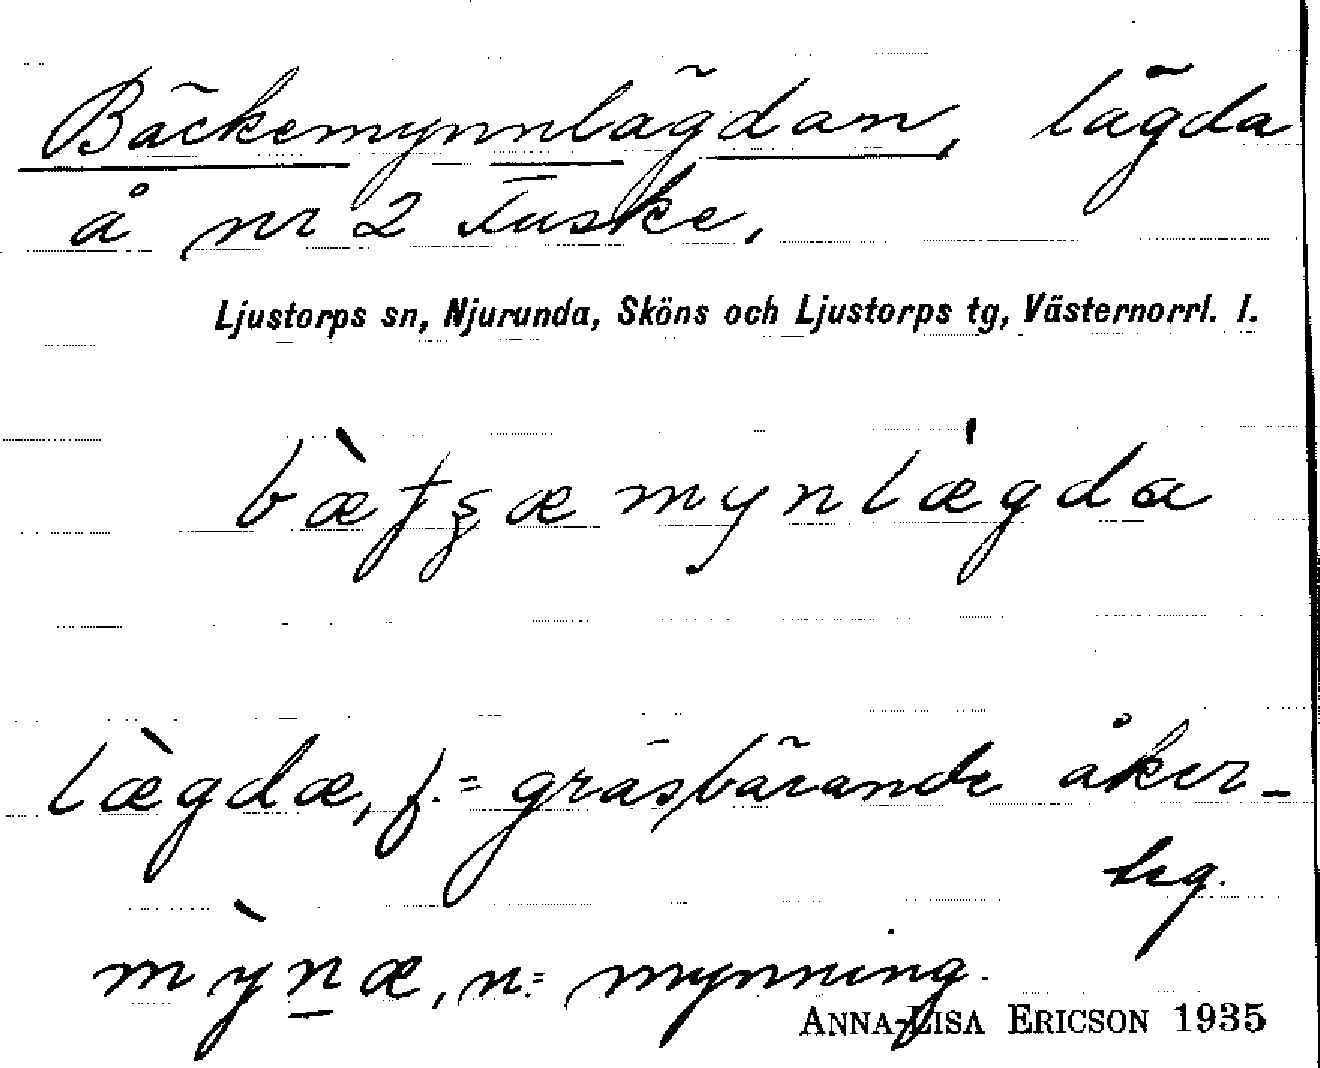 Bäckemynnlägdan, lägda
å nr 2 Fuske.
Ljustorps sn, Njurunda, Sköns och Ljustorps tg, Västernorrl. l.
lægdæ, f.= gräsbärande åker-
teg.
mỳnæ, n.= mynning.
ANNA-LISA ERICSON 1935